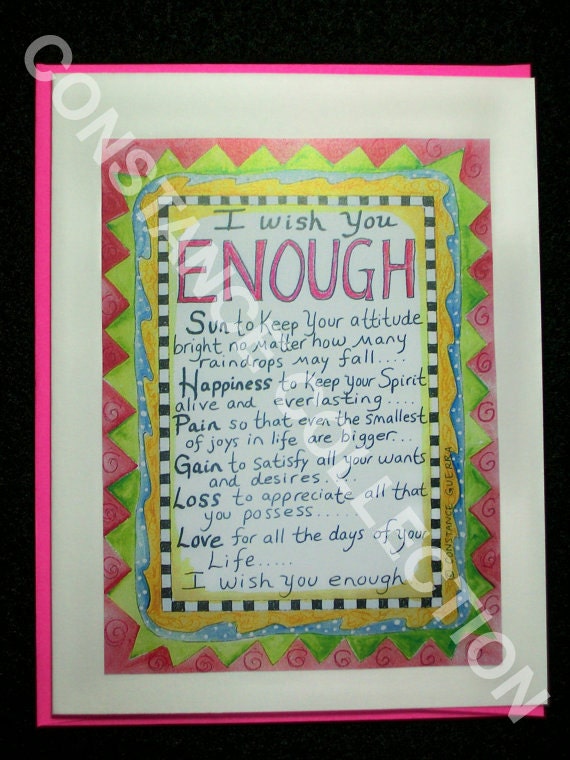 I wish You
ENOUGH
Sun to Keep Your attitude
bright no Matter how many
raindrops may fall....
Happiness to Keep Your Spirit
alive and everlasting....
Pain so that even the smallest
of joys in life are bigger...
Gain to satisfy all your wants
and desires.....
Loss to appreciate all that
you possess.....
Love for all the days of your
Life.....
I wish you enough
© CONSTANCE GUERRA
CONSTANCE COLLECTION